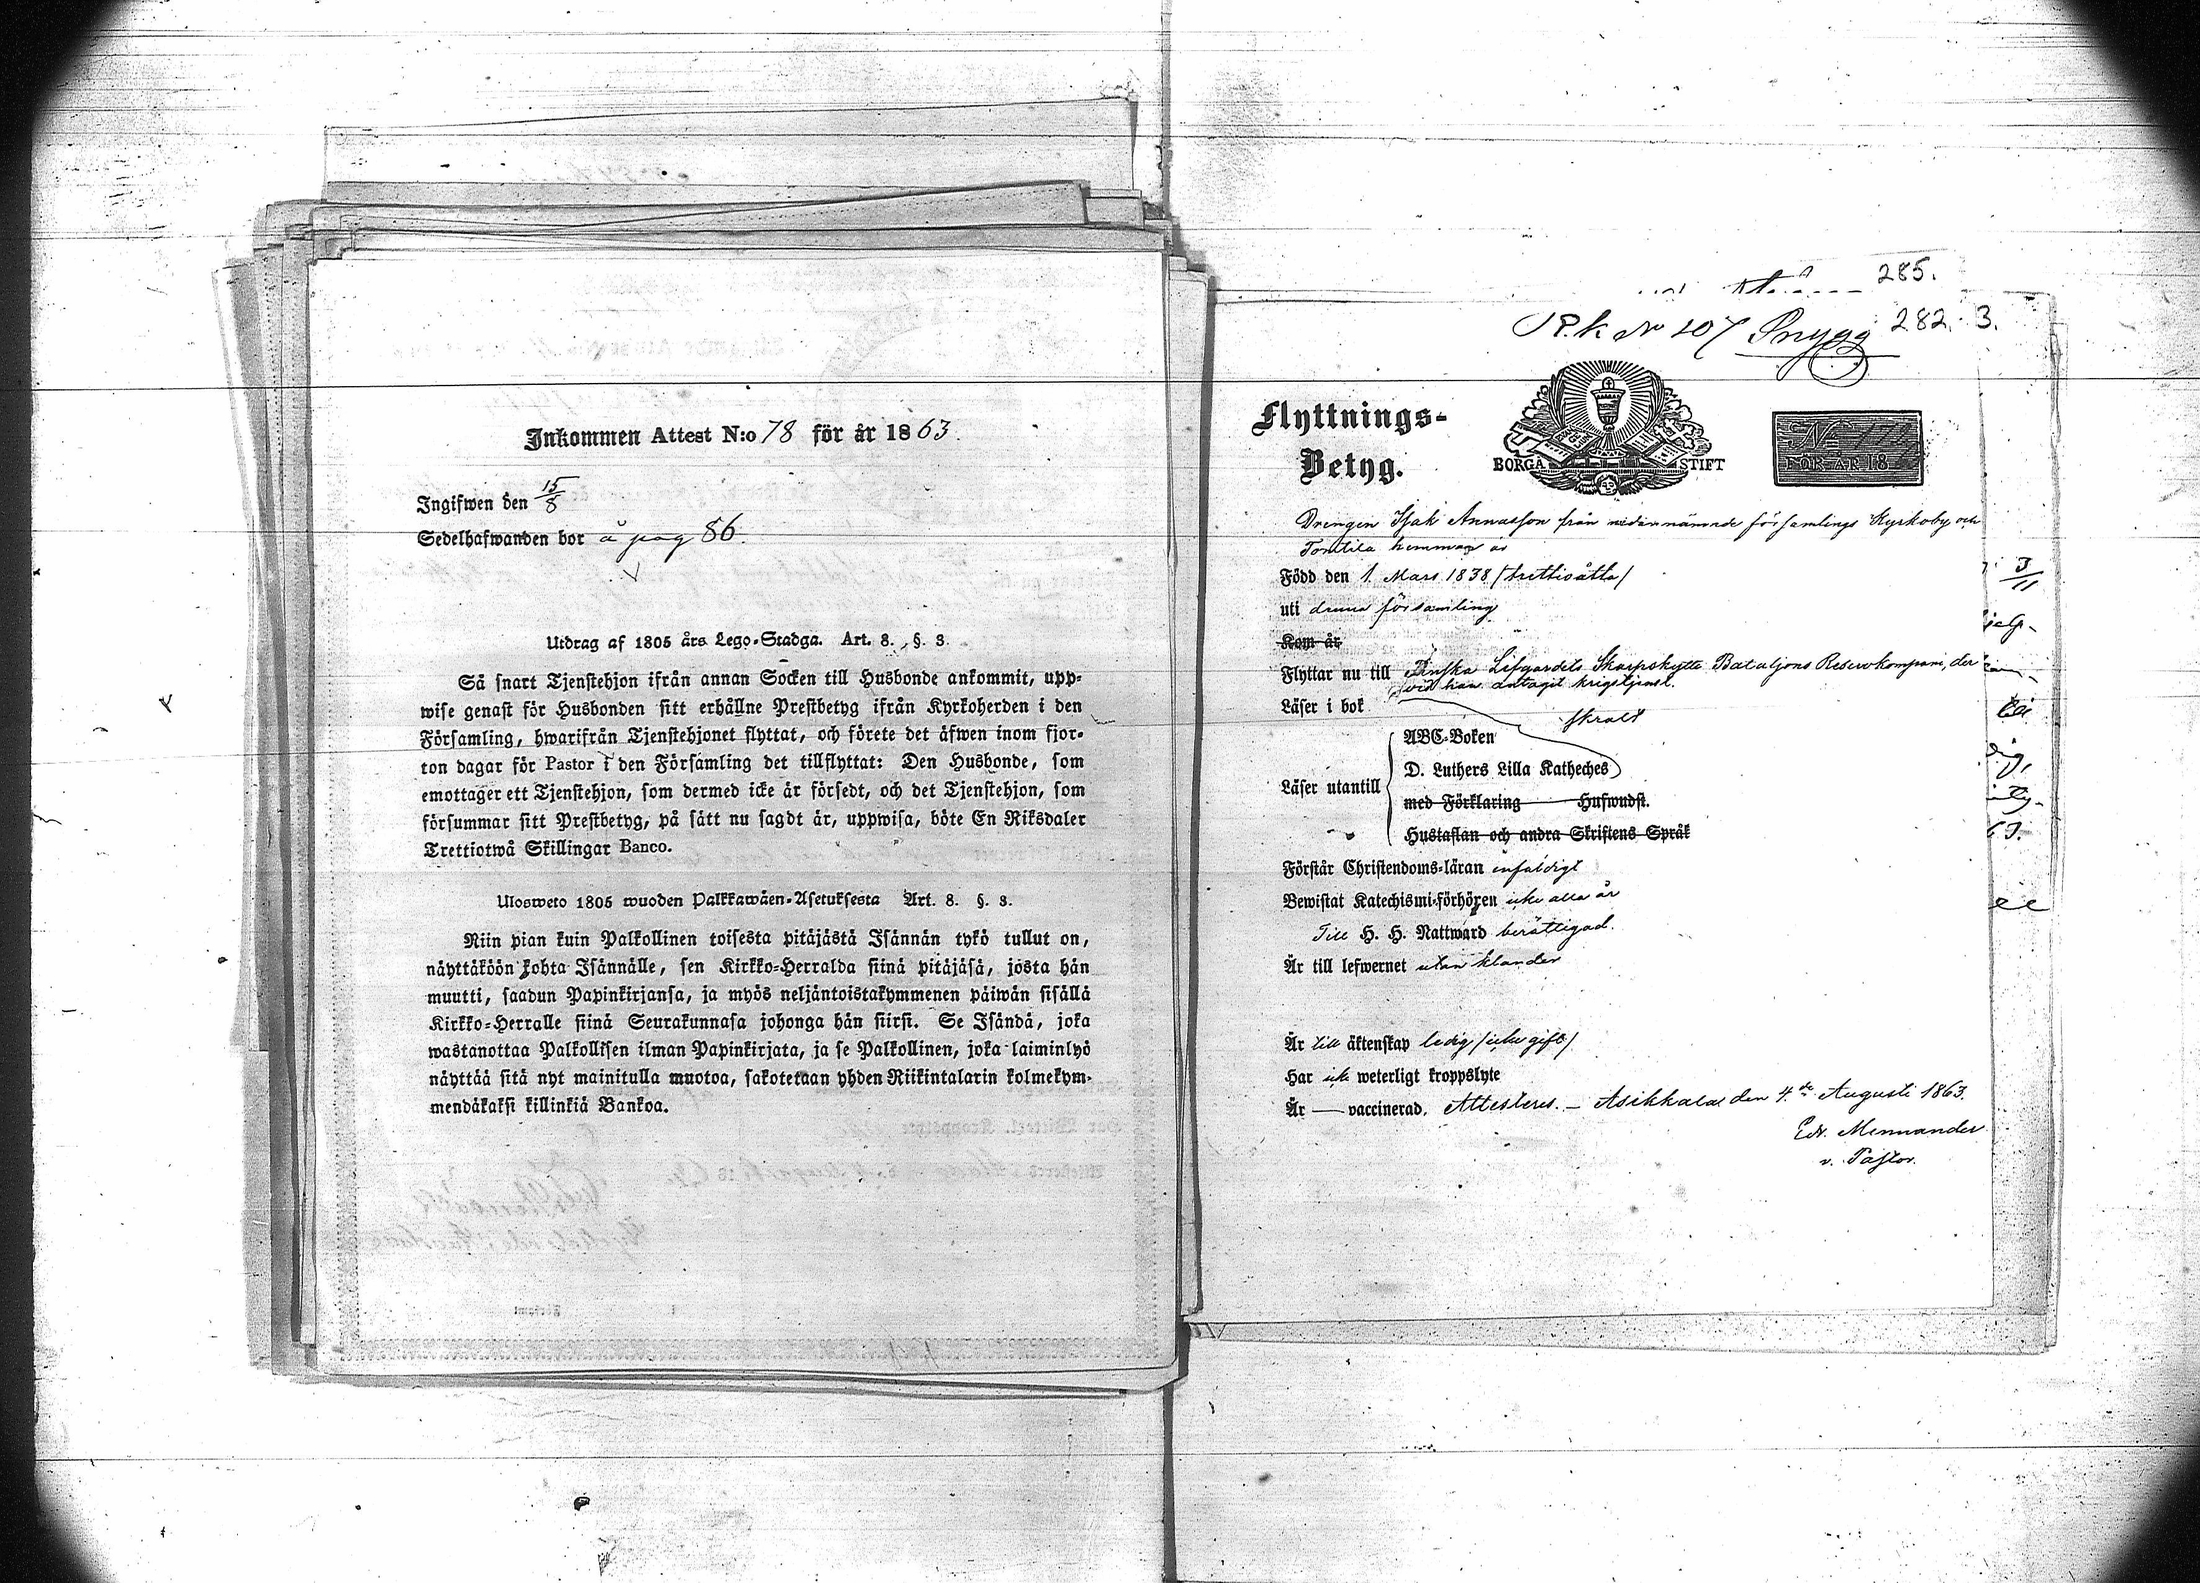 Inkommen Attest N:o 78 för år 1863.
Ingifwen den 15/8
Sedelhafwanden bor å pag 86.
Utdrag af 1805 års Lego-Stadga. Art. 8., §. 3.
Så snart Tjenstehjon ifrån annan Socken till Husbonde ankommit, upp-
wise genast för Husbonden sitt erhållne Prestbetyg ifrån Kyrkoherden i den
Församling, hwarifrån Tjenstehjonet flyttat, och förete det äfwen inom fjor-
ton dagar för Pastor i den Församling det tillflyttat: Den Husbonde, som
emottager ett Tjenstehjon, som dermed icke är försedt, och det Tjenstehjon, som
försummar sitt Prestbetyg, på sätt nu sagdt är, uppwisa, böte En Riksdaler
Trettiotwå Skillingar Banco.
Ulosweto 1805 wuoden Palkkawäen-Asetuksesta Art. 8. §. 3.
Niin pian kuin Palkollinen toisesta pitäjästä Isännän tykö tullut on,
näyttäköön kohta Isännälle, sen Kirkko-Herralda siinä pitäjäsä, josta hän
muutti, saadun Papinkirjansa, ja myös neljäntoistakymmenen päiwän sisällä
Kirkko-Herralle siinä Seurakunnasa johonga hän siirsi. Se Isändä, joka
wastanottaa Palkollisen ilman Papinkirjata, ja se Palkollinen, joka laiminlyö
näyttää sitä nyt mainitulla muotoa, sakotetaan yhden Riikintalarin kolmekym-
mendäkaksi killinkiä Bankoa.
285.
R.k No 107 Snygg 282. 3.
Flyttnings-
Betyg.
BORGÅ STIFT
No 17
FÖR ÅR 18
Drengen Isak Annasson från nedannämnde församlings Kyrkoby och
Tomtila hemman är
Född den 1. Mars 1838 /trettioåtta/
uti denna församling
Kom år
Flyttar nu till Finska Lifgardets Skarpskytte Bataljons Reservkompani, der
vid han antagit krigstjenst.
Läser i bok
svalt
ABC-Boken
D. Luthers Lilla Katheches
Läser utantill
med Förklaring Hufwudst.
Hustaflan och andra Skriftens Språk
Förstår Christendoms-läran enfaldigt
Bewistat Katechismi-förhören icke alla år
Till H. H. Nattward berättigad.
Är till lefwernet utan klander
Är till äktenskap ledig /icke gift/
Har icke weterligt kroppslyte
Är — vaccinerad. Attesteras. — Asikkala den 4.de Augusti 1863.
Edv. Mennander
v. Pastor.